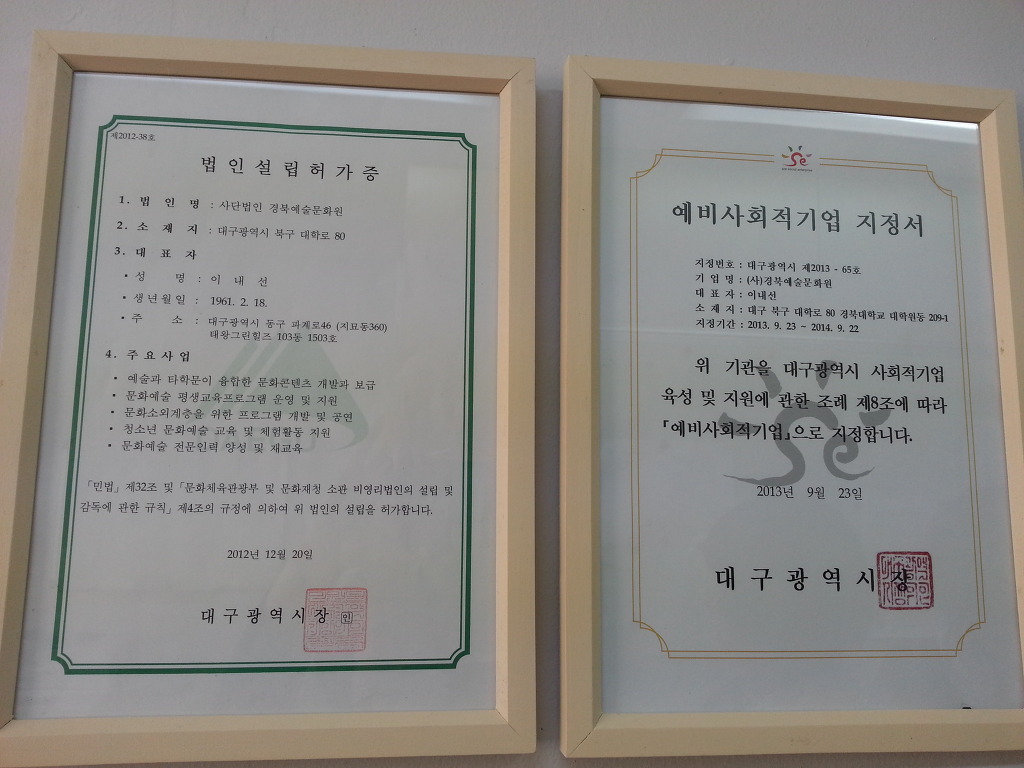 제2012-38호
법인설립허가증
1. 법 인 명 : 사단법인 경북예술문화원
2. 소 재 지 : 대구광역시 북구 대학로 80
3. 대 표 자
• 성 명 : 이 내 선
• 생년월일 : 1961. 2. 18.
• 주 소 : 대구광역시 동구 파계로46 (지묘동360)
태왕그린힐즈 103동 1503호
4. 주요사업
• 예술과 타학문이 융합한 문화콘텐츠 개발과 보급
• 문화예술 평생교육프로그램 운영 및 지원
• 문화소외계층을 위한 프로그램 개발 및 공연
• 청소년 문화예술 교육 및 체험활동 지원
• 문화예술 전문인력 양성 및 재교육
「민법」제32조 및「문화체육관광부 및 문화재청 소관 비영리법인의 설립 및
감독에 관한 규칙」제4조의 규정에 의하여 위 법인의 설립을 허가합니다.
2012년 12월 20일
대구광역시장 인
예비사회적기업 지정서
지정번호 : 대구광역시 제2013 - 65호
기 업 명 : (사)경북예술문화원
대 표 자 : 이내선
소 재 지 : 대구 북구 대학로 80 경북대학교 대학원동 209-1
지정기간 : 2013. 9. 23 ~ 2014. 9. 22
위 기관을 대구광역시 사회적기업
육성 및 지원에 관한 조례 제8조에 따라
「예비사회적기업」으로 지정합니다.
2013년 9월 23일
대구광역시장